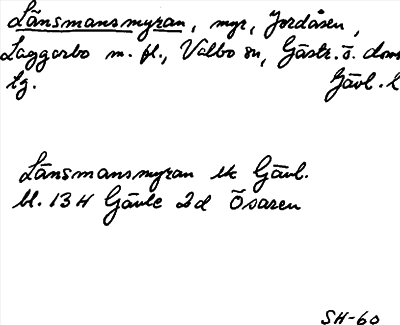 Länsmansmyran, myr, Jordåsen,
Laggarbo m. fl., Valbo sn, Gästr. ö. doms
lg. Gävl. l
Länsmansmyran ek Gävl.
bl. 13 H Gävle 2d Ösaren
SH-60